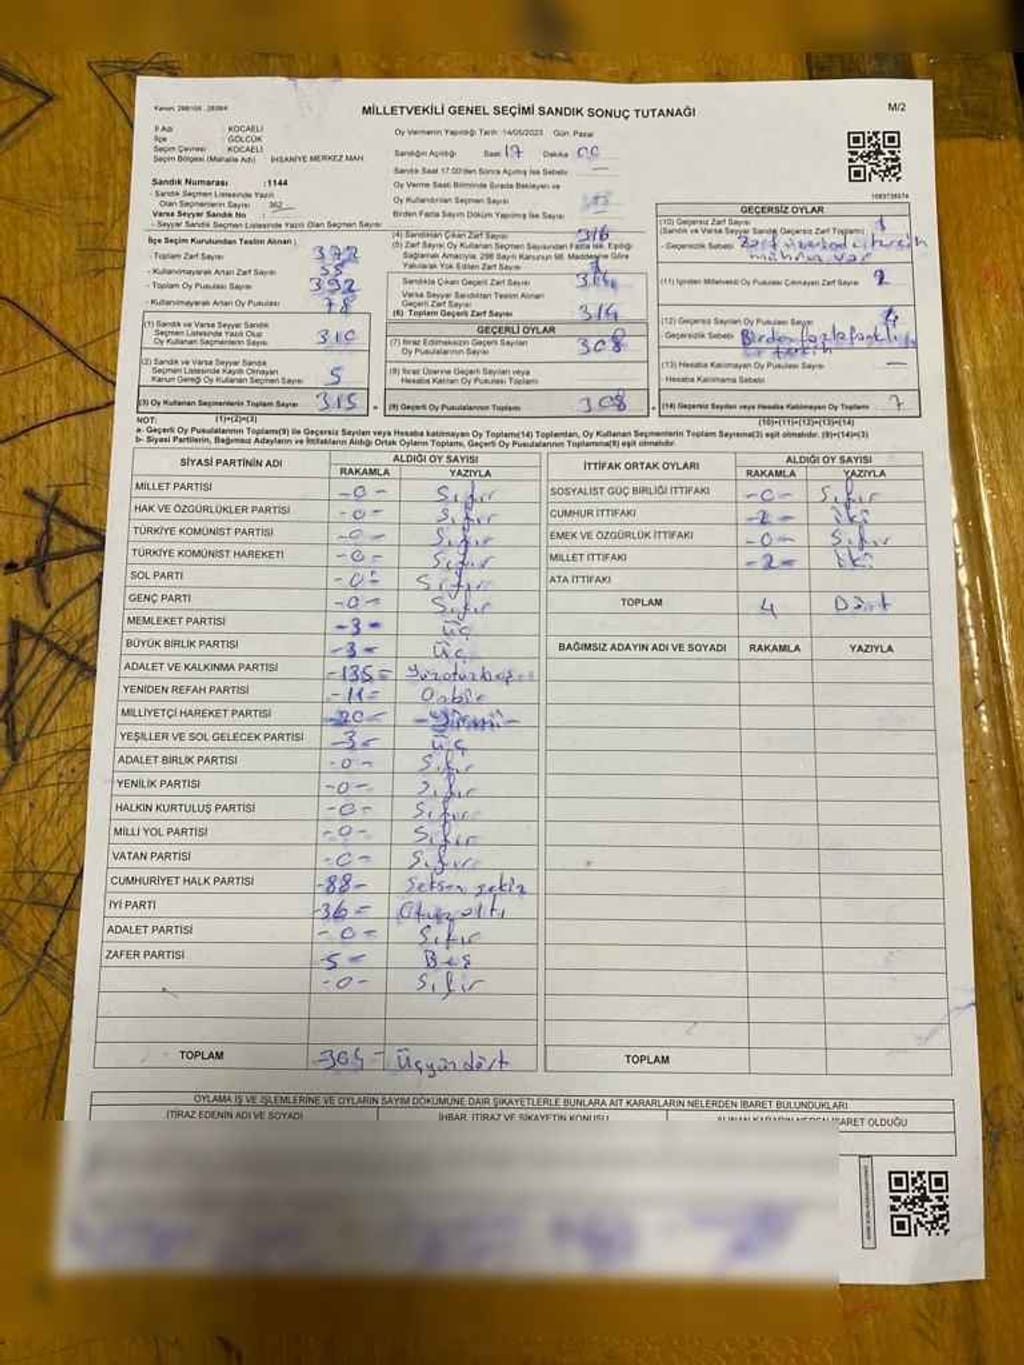 MİLLETVEKİLİ GENEL SEÇİMİ SANDIK SONUÇ TUTANAĞI
M/2
İl Adı : KOCAELİ
İlçe : GÖLCÜK
Seçim Çevresi : KOCAELİ
Seçim Bölgesi (Mahalle Adı) : İHSANİYE MERKEZ MAH
Oy Vermenin Yapıldığı Tarih :14/05/2023 Gün: Pazar
Sandığın Açıldığı Saat 17 Dakika 00
Sandık Saat 17.00'den Sonra Açılmış İse Sebebi
Sandık Numarası :1144
- Sandık Seçmen Listesinde Yazılı
Olan Seçmenlerin Sayısı 362
Varsa Seyyar Sandık No :
- Seyyar Sandık Seçmen Listesinde Yazılı Olan Seçmen Sayısı
Oy Verme Saati Bitiminde Sırada Bekleyen ve
Oy Kullandırılan Seçmen Sayısı
Birden Fazla Sayım Döküm Yapılmış İse Sayısı
İlçe Seçim Kurulundan Teslim Alınan :
- Toplam Zarf Sayısı 372
- Kullanılmayarak Artan Zarf Sayısı 55
- Toplam Oy Pusulası Sayısı 392
- Kullanılmayarak Artan Oy Pusulası 78
(1) Sandık ve Varsa Seyyar Sandık
Seçmen Listesinde Yazılı Olup
Oy Kullanan Seçmenlerin Sayısı 310
(2) Sandık ve Varsa Seyyar Sandık
Seçmen Listesinde Kayıtlı Olmayan
Kanun Gereği Oy Kullanan Seçmen Sayısı 5
(3) Oy Kullanan Seçmenlerin Toplam Sayısı 315
(1)+(2)=(3)
(4) Sandıktan Çıkan Zarf Sayısı 316
(5) Zarf Sayısı Oy Kullanan Seçmen Sayısından Fazla ise, Eşitliği
Sağlamak Amacıyla, 298 Sayılı Kanunun 98. Maddesine Göre
Yakılarak Yok Edilen Zarf Sayısı 1
Sandıkta Çıkan Geçerli Zarf Sayısı 314
Varsa Seyyar Sandıktan Teslim Alınan
Geçerli Zarf Sayısı
(6) Toplam Geçerli Zarf Sayısı 314
GEÇERLİ OYLAR
(7) İtiraz Edilmeksizin Geçerli Sayılan
Oy Pusulalarının Sayısı 308
(8) İtiraz Üzerine Geçerli Sayılan veya
Hesaba Katılan Oy Pusulaları Toplamı
(9) Geçerli Oy Pusulalarının Toplamı 308
GEÇERSİZ OYLAR
(10) Geçersiz Zarf Sayısı 1
(Sandık ve Varsa Seyyar Sandık Geçersiz Zarf Toplamı)
- Geçersizlik Sebebi Zarf üzerinde tercih
mührü var
(11) İçinden Milletvekili Oy Pusulası Çıkmayan Zarf Sayısı 2
(12) Geçersiz Sayılan Oy Pusulası Sayısı 4
- Geçersizlik Sebebi Birden fazla farklı
tercih
(13) Hesaba Katılmayan Oy Pusulası Sayısı —
- Hesaba Katılmama Sebebi
(14) Geçersiz Sayılan veya Hesaba Katılmayan Oy Toplamı 7
(10)+(11)+(12)+(13)=(14)
NOT:
a- Geçerli Oy Pusulalarının Toplamı(9) ile Geçersiz Sayılan veya Hesaba katılmayan Oy Toplamı(14) Toplamları, Oy Kullanan Seçmenlerin Toplam Sayısına(3) eşit olmalıdır. (9)+(14)=(3)
b- Siyasi Partilerin, Bağımsız Adayların ve İttifakların Aldığı Ortak Oyların Toplamı, Geçerli Oy Pusulalarının Toplamına(9) eşit olmalıdır.
SİYASİ PARTİNİN ADI ALDIĞI OY SAYISI
RAKAMLA YAZIYLA
MİLLET PARTİSİ -0- Sıfır
HAK VE ÖZGÜRLÜKLER PARTİSİ -0- Sıfır
TÜRKİYE KOMÜNİST PARTİSİ -0- Sıfır
TÜRKİYE KOMÜNİST HAREKETİ -0- Sıfır
SOL PARTİ -0- Sıfır
GENÇ PARTİ -0- Sıfır
MEMLEKET PARTİSİ -3- üç
BÜYÜK BİRLİK PARTİSİ -3- üç
ADALET VE KALKINMA PARTİSİ -135- Yüzotuzbeş
YENİDEN REFAH PARTİSİ -11- Onbir
MİLLİYETÇİ HAREKET PARTİSİ -20- -Yirmi-
YEŞİLLER VE SOL GELECEK PARTİSİ -3- üç
ADALET BİRLİK PARTİSİ -0- Sıfır
YENİLİK PARTİSİ -0- Sıfır
HALKIN KURTULUŞ PARTİSİ -0- Sıfır
MİLLİ YOL PARTİSİ -0- Sıfır
VATAN PARTİSİ -0- Sıfır
CUMHURİYET HALK PARTİSİ -88- Seksen sekiz
İYİ PARTİ -36- Otuz altı
ADALET PARTİSİ -0- Sıfır
ZAFER PARTİSİ -5- Beş
-0- Sıfır
TOPLAM -304- Üçyüzdört
İTTİFAK ORTAK OYLARI ALDIĞI OY SAYISI
RAKAMLA YAZIYLA
SOSYALİST GÜÇ BİRLİĞİ İTTİFAKI -0- Sıfır
CUMHUR İTTİFAKI -2- iki
EMEK VE ÖZGÜRLÜK İTTİFAKI -0- Sıfır
MİLLET İTTİFAKI -2- iki
ATA İTTİFAKI
TOPLAM 4 Dört
BAĞIMSIZ ADAYIN ADI VE SOYADI RAKAMLA YAZIYLA
TOPLAM
OYLAMA İŞ VE İŞLEMLERİNE VE OYLARIN SAYIM DÖKÜMÜNE DAİR ŞİKAYETLERLE BUNLARA AİT KARARLARIN NELERDEN İBARET BULUNDUKLARI
İTİRAZ EDENİN ADI VE SOYADI İHBAR, İTİRAZ VE ŞİKAYETİN KONUSU